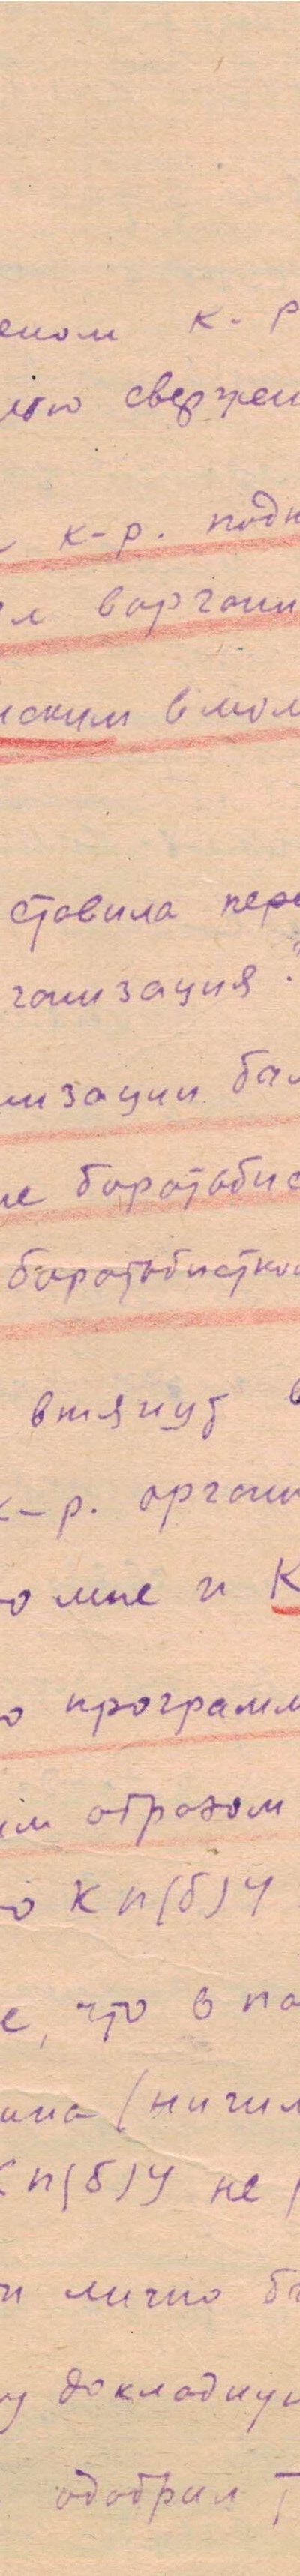 еном к-р
лью свержен
к-р. подп
л воргани
нским в мом
ставила пере
ганизация
низации был
ие боротьбис
боротьбистко
втянут в
к-р. органи
о мне и К
о программ
им образом
о КП(б)У
е, что в по
ина (ничил
КП(б)У не
и лично бы
у докладную
одобрил